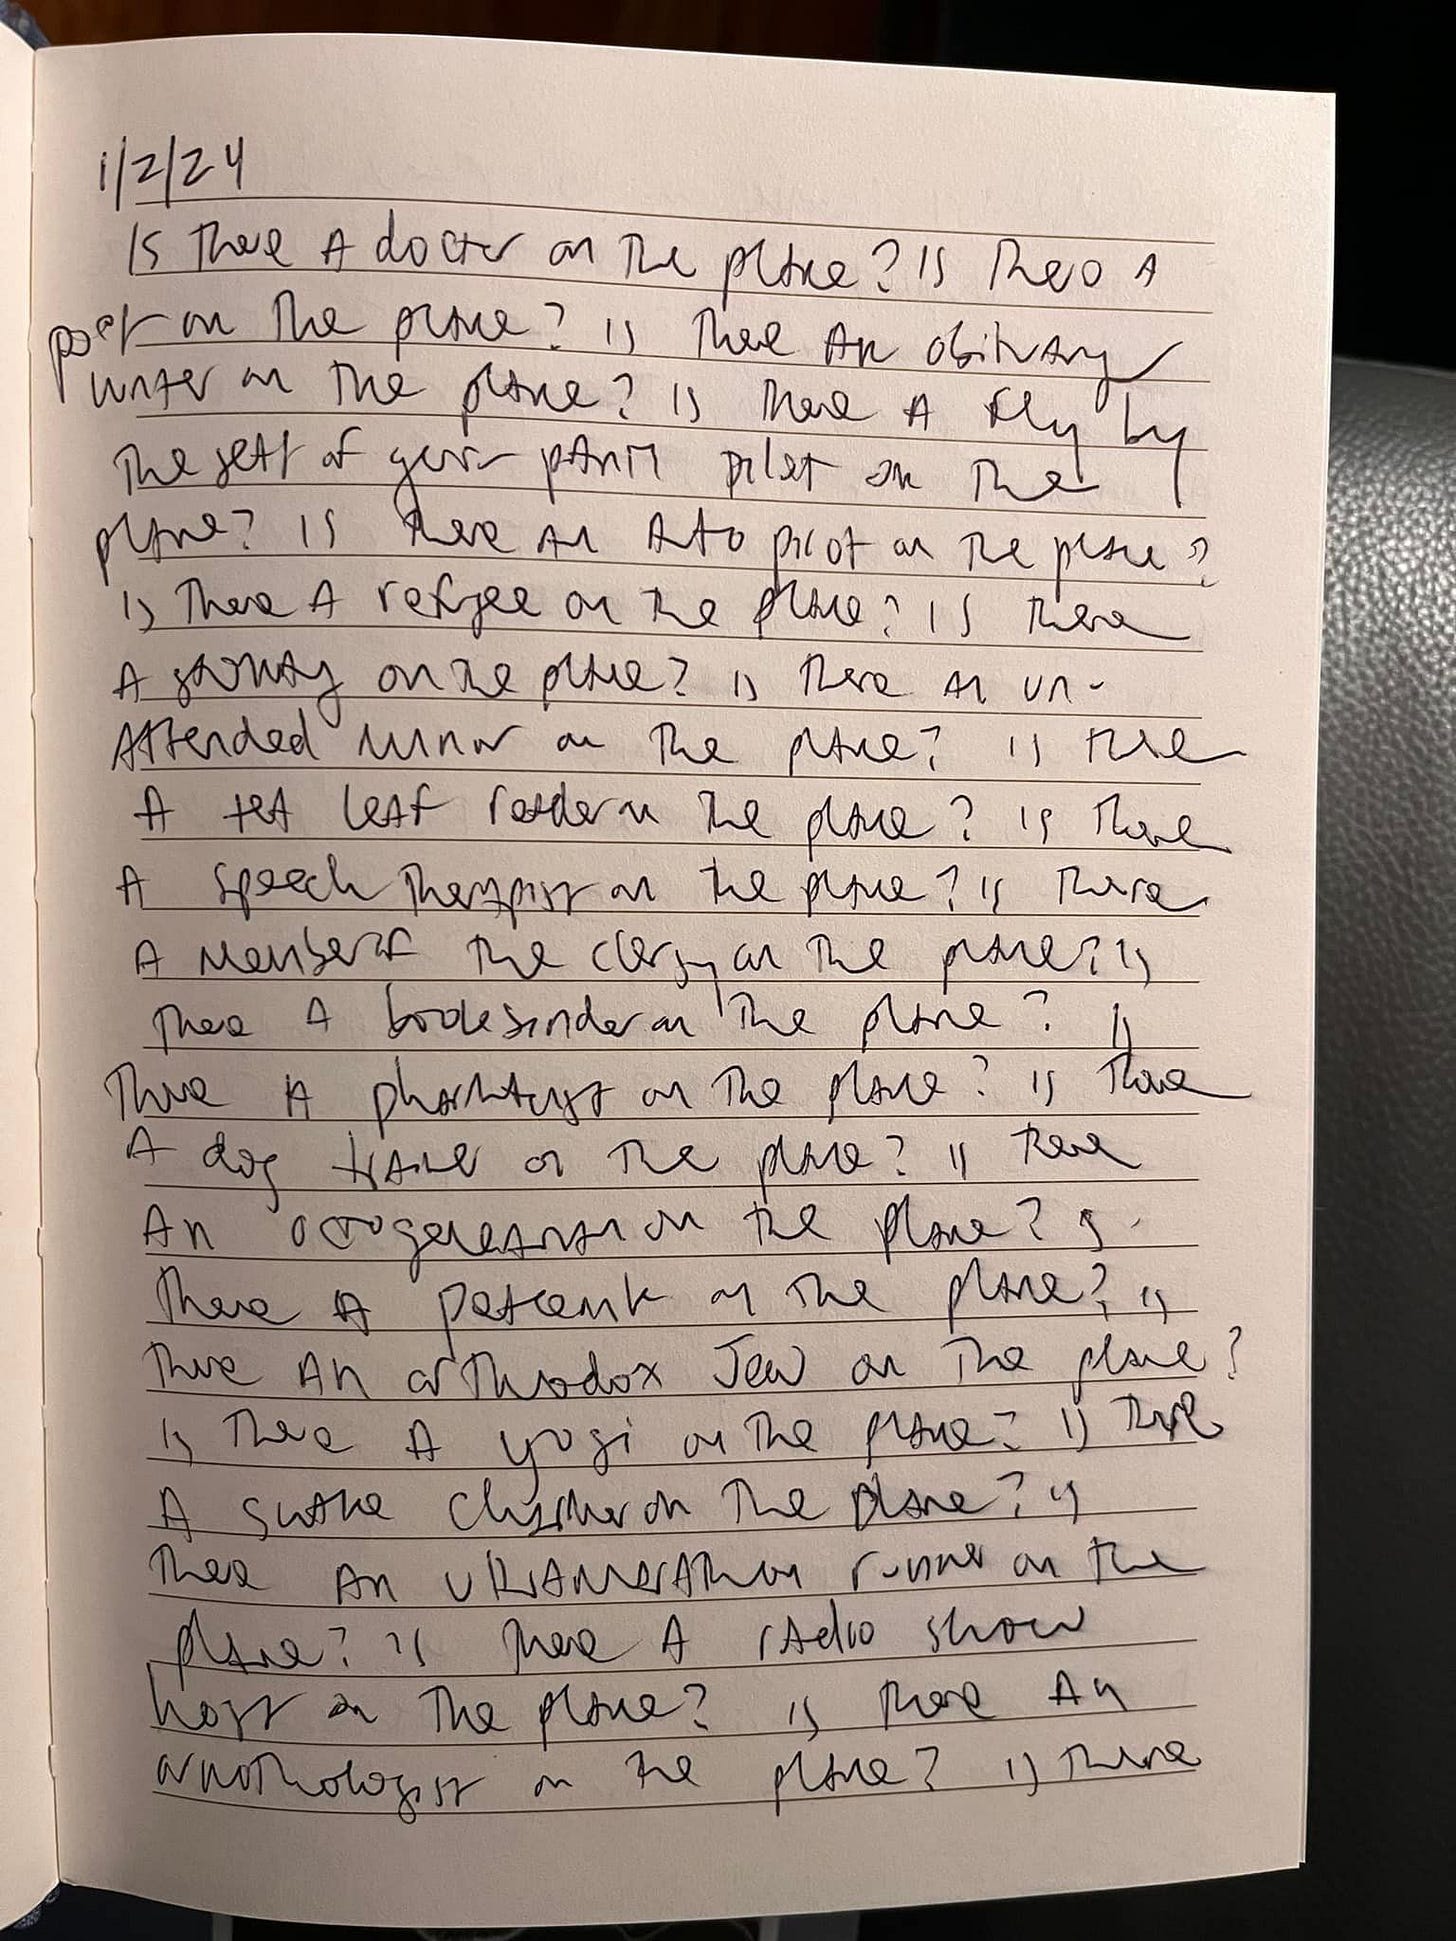 1/2/24
Is There A doctor on The plane? Is There A
poet on The plane? Is There An obituary
writer on The plane? Is There A fly by
The seat of your pants pilot on The
plane? Is there An Auto pilot on The plane?
Is There A refugee on The plane? Is There
A on The plane? Is There An un-
Attended minor on The plane? Is there
A tea leaf reader on The plane? Is There
A speech Therapist on The plane? Is There
A Member of The clergy on The plane? Is
There A bookbinder on The plane? Is
There A pharmacist on The plane? Is There
A dog trainer on The plane? Is There
An octogenarian on The plane? Is
There A on The plane? Is
There An orthodox Jew on The plane?
Is There A yogi on The plane? Is There
A snake charmer on The plane? Is
There An ultramarathon runner on The
plane? Is There A radio show
host on The plane? Is There An
ornithologist on The plane? Is There